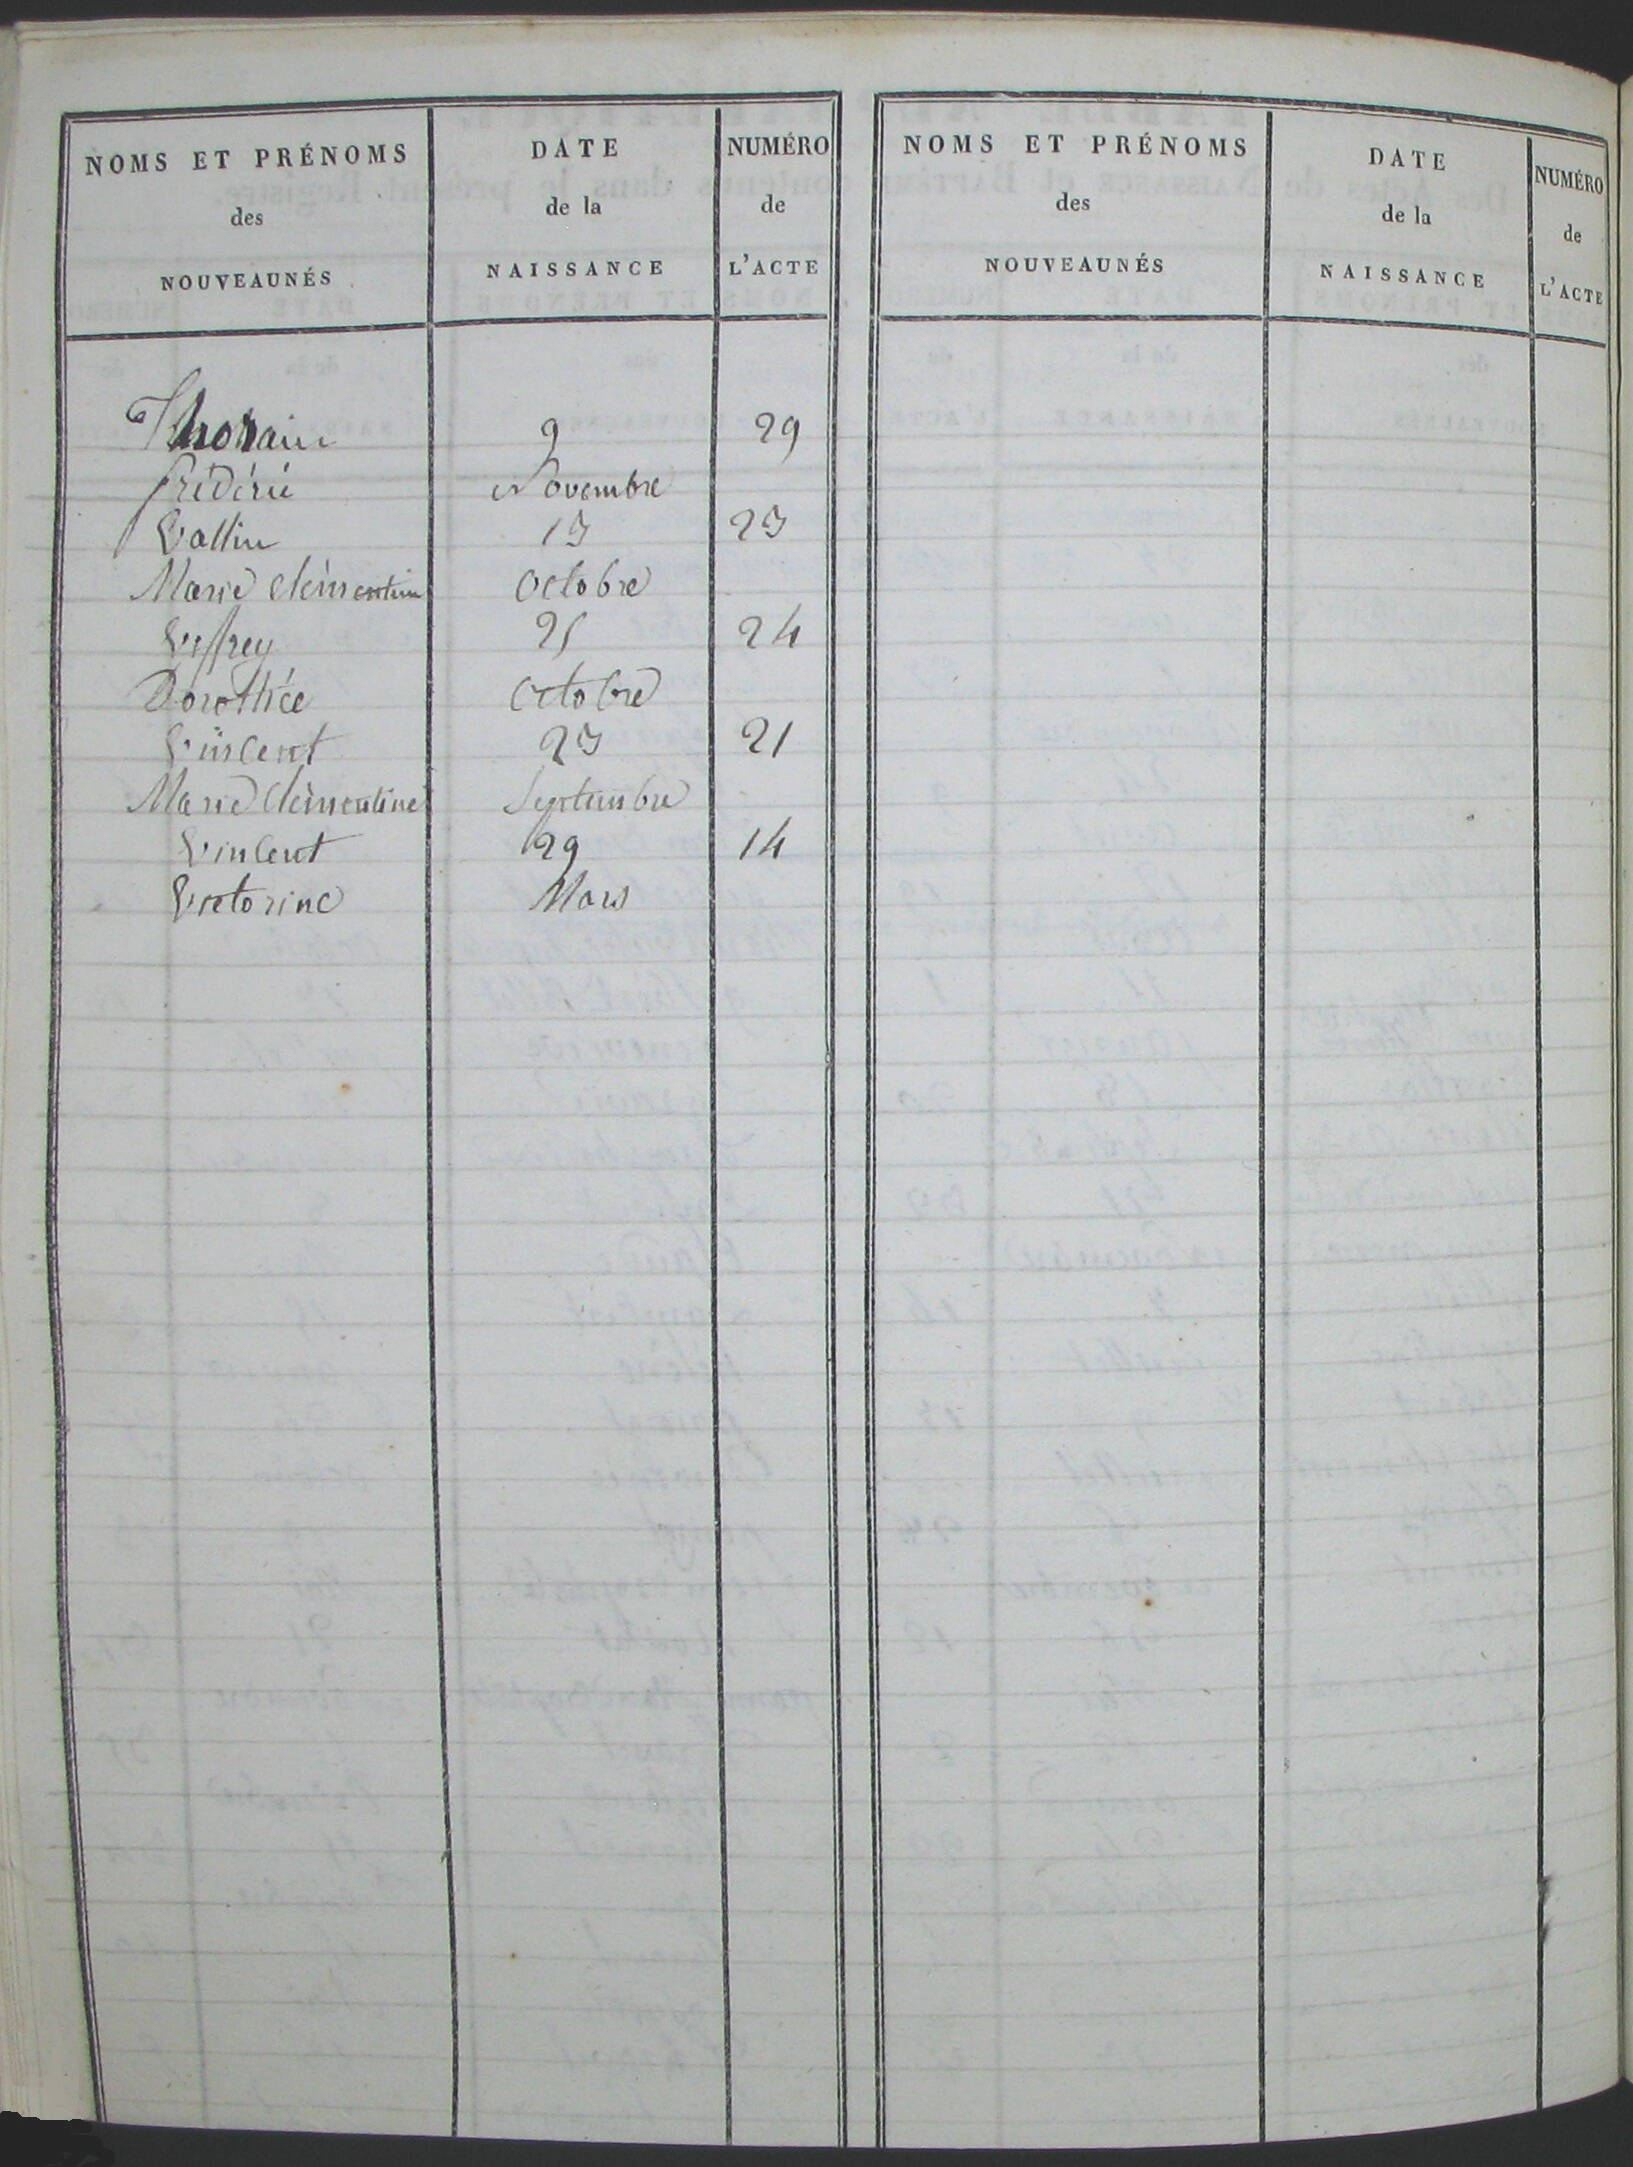 NOMS ET PRÉNOMS
des
NOUVEAUNÉS
DATE
de la
NAISSANCE
NUMÉRO
de
L'ACTE
NOMS ET PRÉNOMS
des
NOUVEAUNÉS
DATE
de la
NAISSANCE
NUMÉRO
de
L'ACTE
9 29
frédéric Novembre
Vallin 13 23
Marie Clémentine Octobre
Veffrey 25 24
Dorothée Octobre
Vincent 23 21
Marie Clémentine Septembre
Vincent 29 14
Victorine Mars